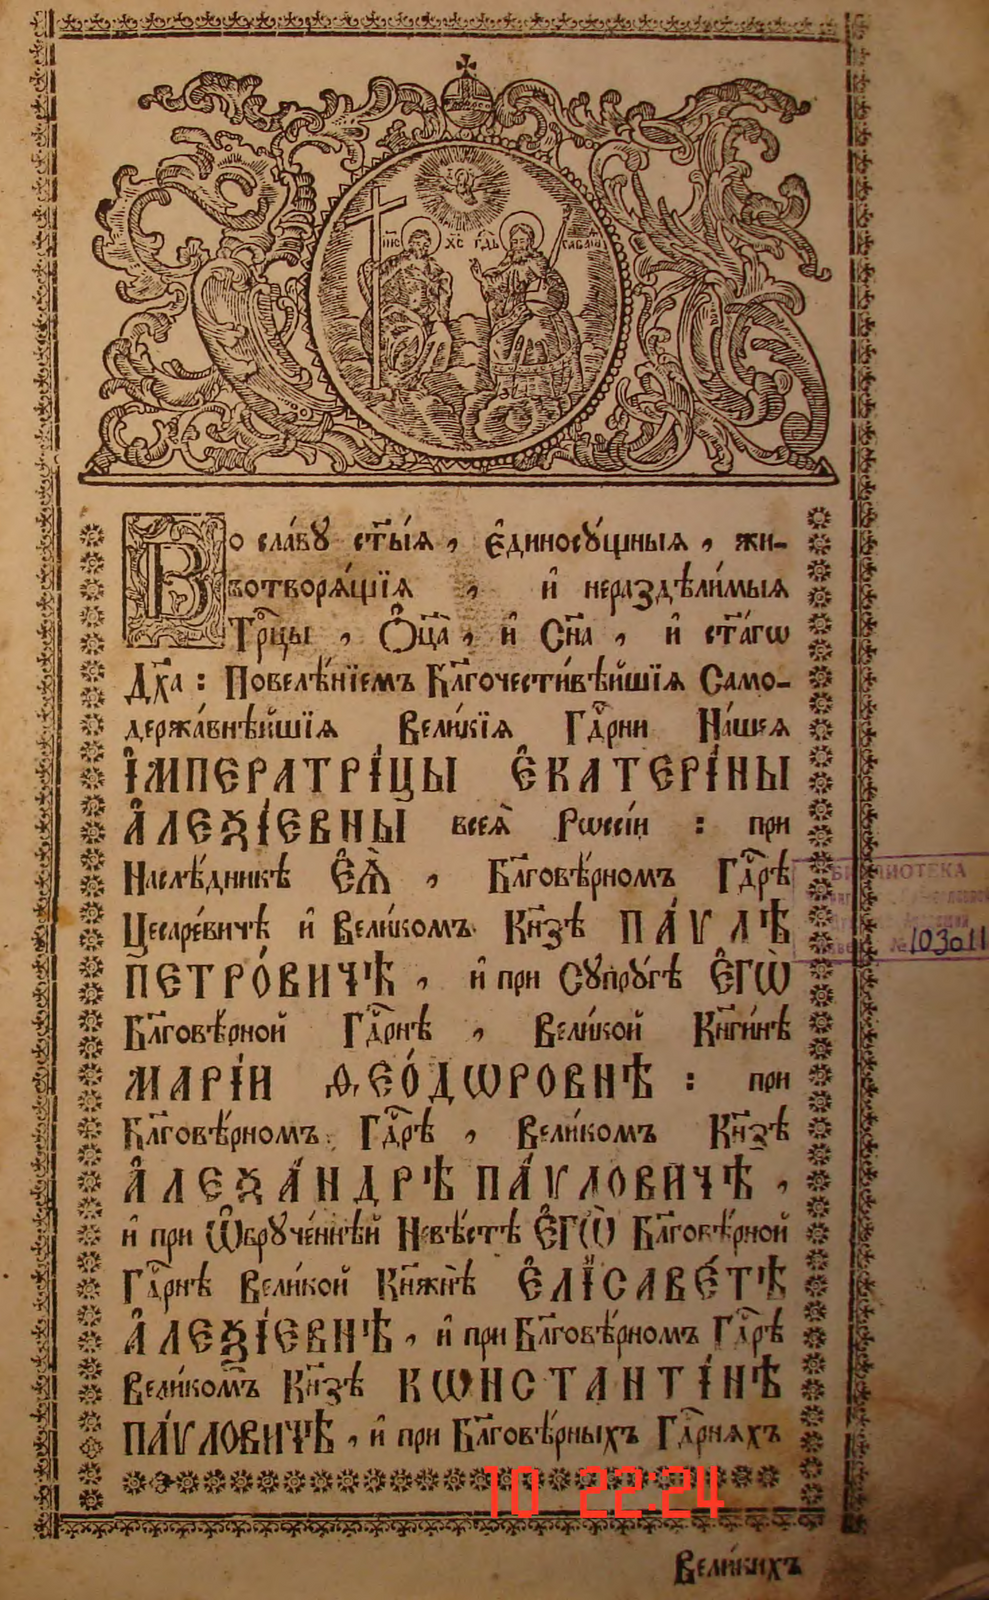 І҃ИС Х҃С Г҃ДЬ САВАѠѲ
Во сла́вꙋ ст҃ы́ѧ , є҆диносꙋ́щныѧ , жи-
вотворѧ́щїѧ , и҆ нераздѣли́мыѧ
Трⷪ҇цы , Ѻ҆ц҃а̀ , и҆ Сн҃а , и҆ ст҃а́гѡ
Дх҃а : Повелѣ́нїемъ Бл҃гочести́вѣйшїѧ Само-
держа́внѣйшїѧ Вели́кїѧ Гдⷭ҇рни На́шеѧ
І҆МПЕРАТРІ́ЦЫ Є҆КАТЕРІ́НЫ
А҆ЛЕѮІ́ЕВНЫ всеѧ̀ Рѡссі́и : при
Наслѣ́дникѣ Є҆Ѧ̀ , Бл҃говѣ́рномъ Гдⷭ҇рѣ
Цесаре́вичѣ и҆ Вели́комъ Кн҃зѣ ПА́ѴЛѢ
ПЕТРО́ВИЧѢ , и҆ при Сꙋпрꙋ́гѣ Є҆ГѠ̀
Бл҃говѣ́рной Гдⷭ҇рнѣ , Вели́кой Кн҃ги́нѣ
МАРІ́И Ѳ҆ЕО́ДѠРОВНѢ : при
Бл҃говѣ́рномъ Гдⷭ҇рѣ , Вели́комъ Кн҃зѣ
А҆ЛЕѮА́НДРѢ ПА́ѴЛОВИЧѢ ,
и҆ при Ѡ҆брꙋче́ннѣй Невѣ́стѣ Є҆ГѠ̀ Бл҃говѣ́рной
Гдⷭ҇рнѣ Вели́кой Кн҃жнѣ̀ Є҆ЛІСАВЕ́ТѢ
А҆ЛЕѮІ́ЕВНѢ , и҆ при Бл҃говѣ́рномъ Гдⷭ҇рѣ
Вели́комъ Кн҃зѣ КѠНСТАНТІ́НѢ
ПА́ѴЛОВИЧѢ , и҆ при Бл҃говѣ́рныхъ Гдⷭ҇рнѧхъ
Вели́кихъ
БИБЛИОТЕКА
№ 103011
10 22:24